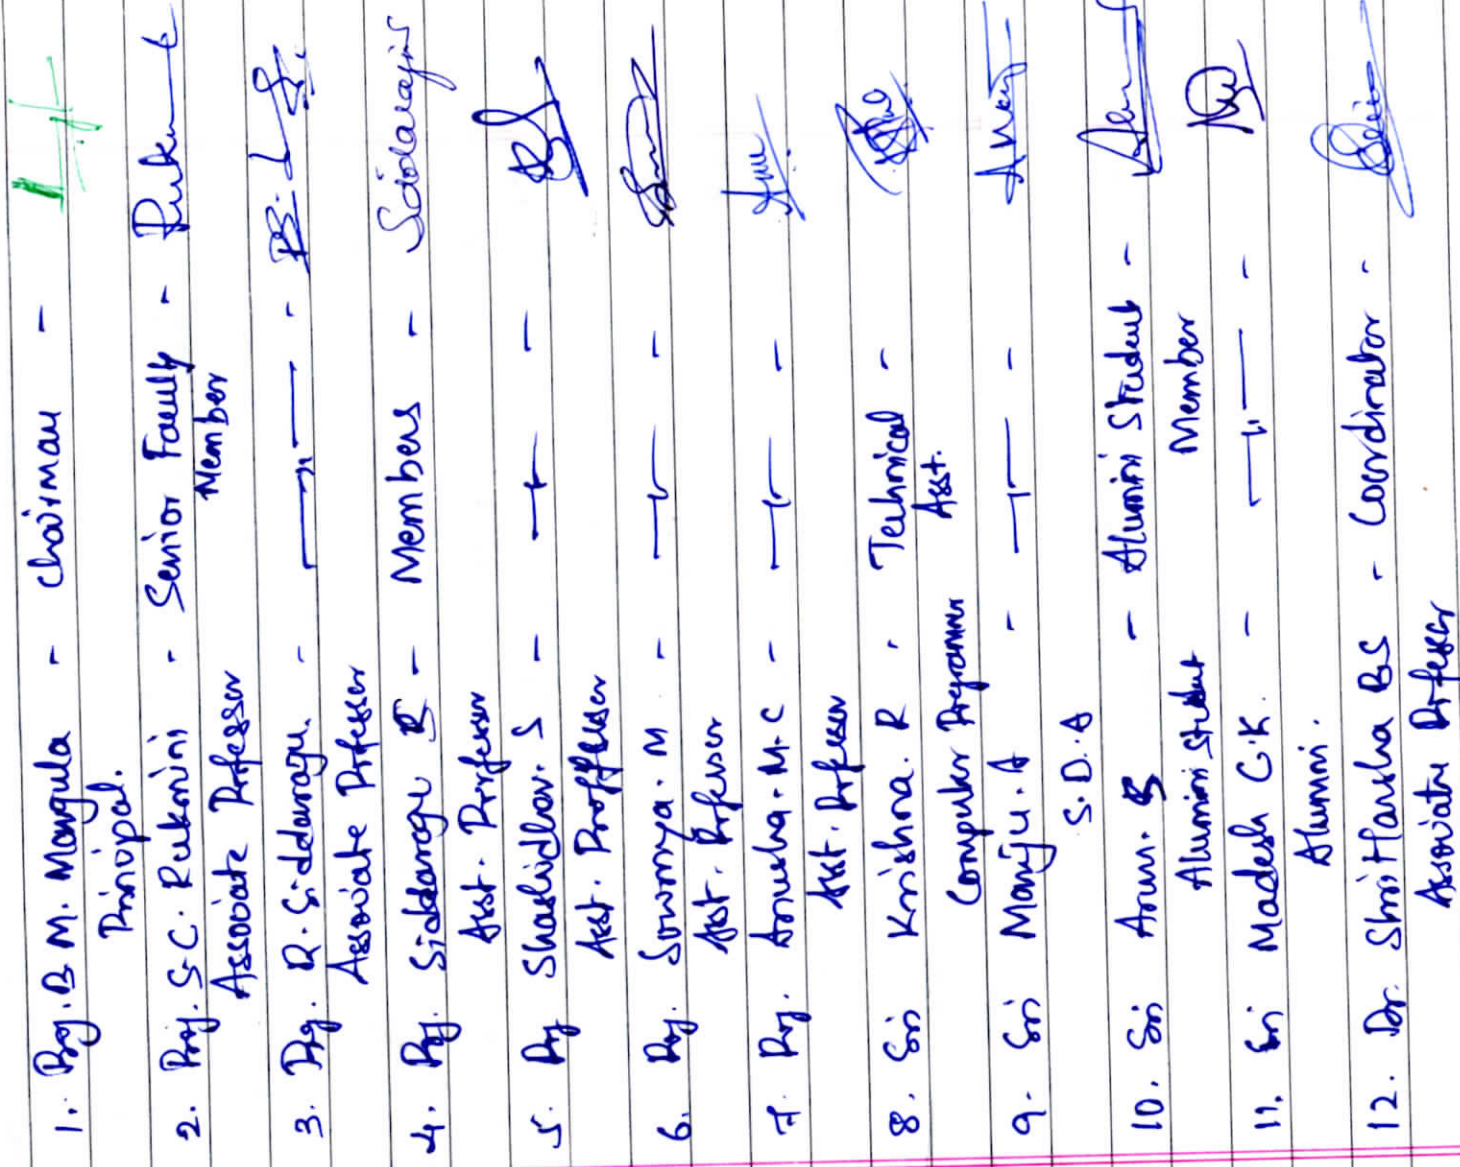 1. Prof. B M. Mangula - Chairman -
Principal.
2. Prof. S. C. Rukmini - Senior Faculty -
Associate Professer Member
3. Prof. R. Siddaraju. - —〃— -
Associate Professer
4. Prof. Siddaraju R - Members - Siddaraju
Asst. Professer
5. Prof Shashidhar. S - —〃— -
Asst. Proffesser
6. Prof. Sowmya. M - —〃— -
Asst. Professer
7. Prof. Anusha. M. C - —〃— -
Asst. Professer
8. Sri Krishna. R - Technical -
Computer Programmer Asst.
9. Sri Manju. A - —〃— -
S. D. A
10. Sri Arun. - Alumini Student -
Alumini Student Member
11. Sri Madesh C. K. - —〃— -
Alumini.
12. Dr. Shri Harsha BS - Coordinator -
Associate Professer